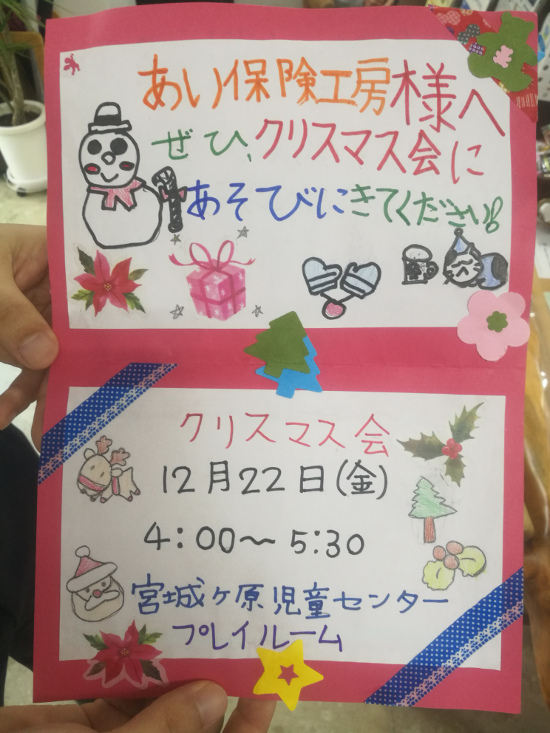 あい保険工房様へ
ぜひ、クリスマス会に
あそびにきてください!!
クリスマス会
12月22日(金)
4:00〜5:30
宮城ヶ原児童センター
プレイルーム